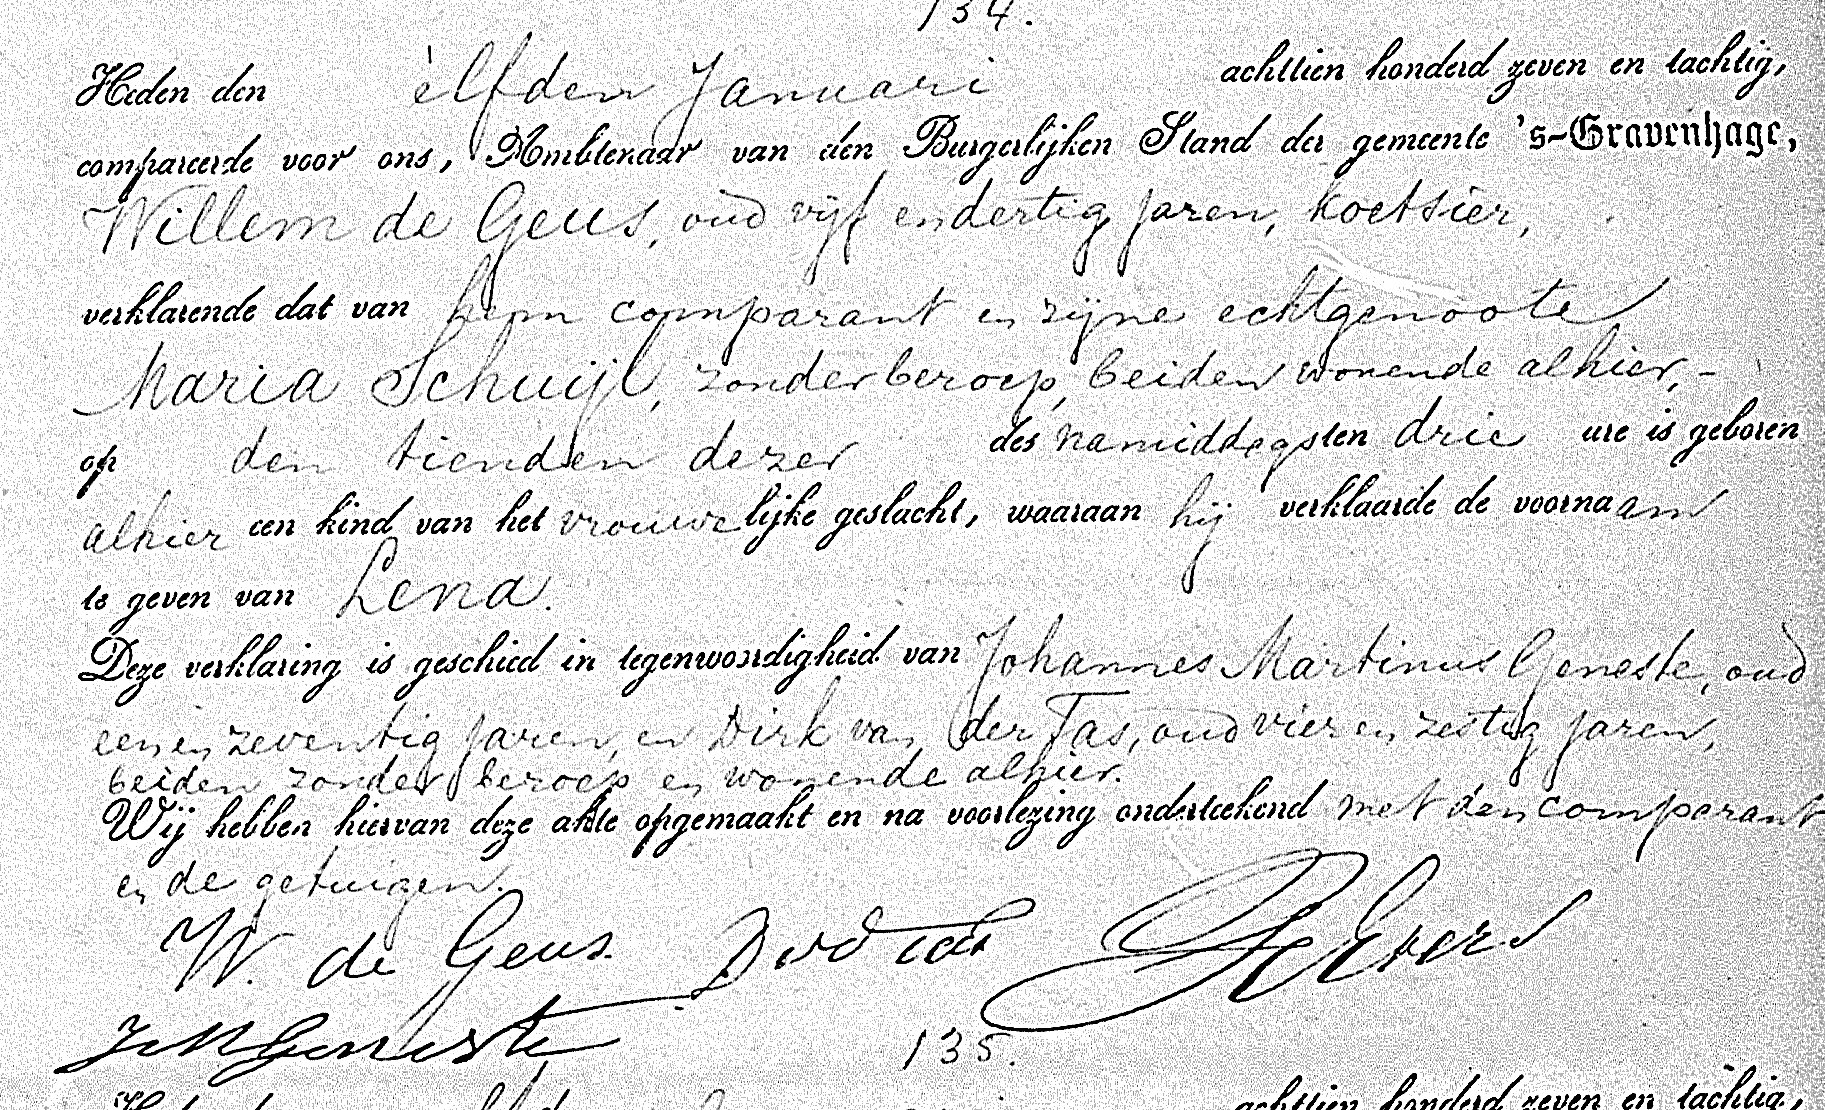 134.
Heden den elfden Januari achttien honderd zeven en tachtig,
compareerde voor ons, Ambtenaar van den Burgerlijken Stand der gemeente 's-Gravenhage,
Willem de Geus, oud vijf en dertig jaren, koetsier,
verklarende dat van hem comparant en zijne echtgenoote
Maria Schuijl, zonder beroep, beiden wonende alhier, -
op den tienden dezer des namiddags ten drie ure is geboren
alhier een kind van het vrouwelijke geslacht, waaraan hij verklaarde de voornaam
te geven van Lena.
Deze verklaring is geschied in tegenwoordigheid van Johannes Martinus Geneste, oud
een en zeventig jaren, en Dirk van der Tas, oud vier en zestig jaren,
beiden zonder beroep en wonende alhier.
Wij hebben hiervan deze akte opgemaakt en na voorlezing onderteekend met den comparant
en de getuigen.
W. de Geus.
JM Geneste
135.
achttien honderd zeven en tachtig,